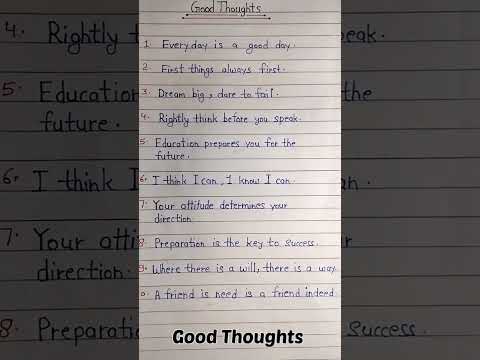 Good Thoughts
1. Everyday is a good day.
2. First things always first.
3. Dream big, dare to fail.
4. Rightly think before you speak.
5. Education prepares you for the
future.
6. I think I can, I know I can.
7. Your attitude determines your
direction.
8. Preparation is the key to success.
9. Where there is a will, there is a way.
0. A friend is need is a friend indeed.
Good Thoughts